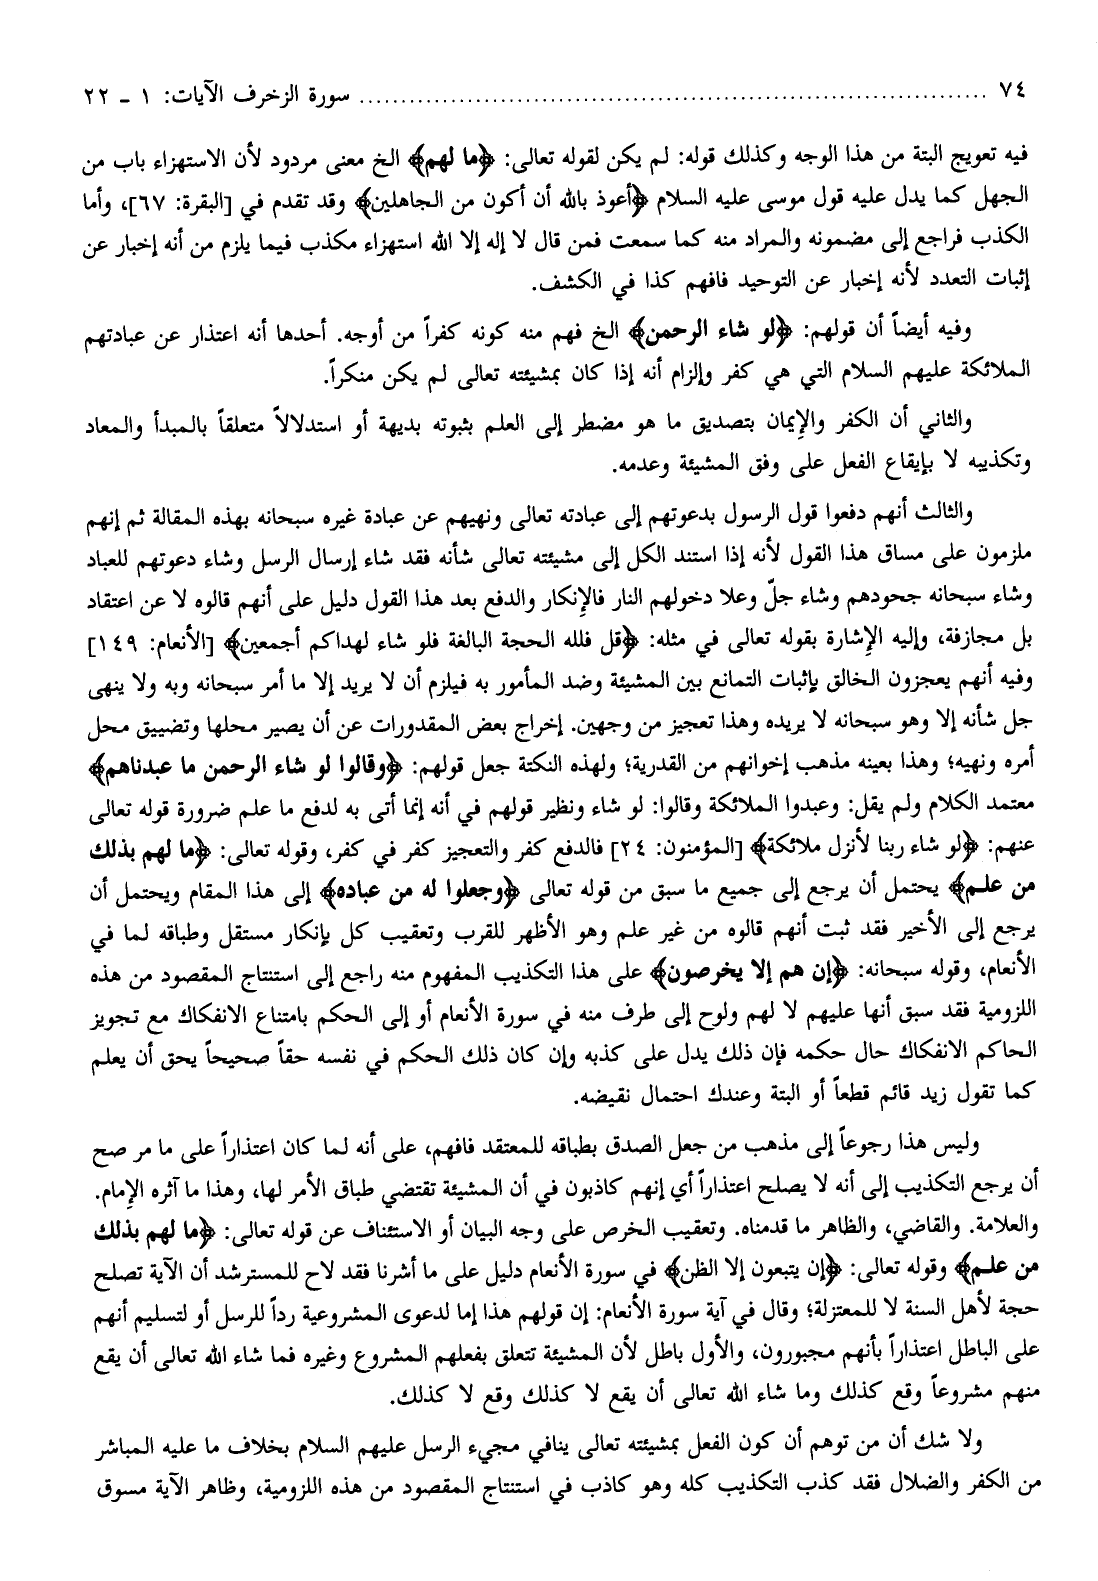 ٧٤ ........................................................ سورة الزخرف الآيات: ١ - ٢٢
فيه تعويج البتة من هذا الوجه وكذلك قوله: لم يكن لقوله تعالى: ﴿ما لهم﴾ الخ معنى مردود لأن الاستهزاء باب من
الجهل كما يدل عليه قول موسى عليه السلام ﴿أعوذ بالله أن أكون من الجاهلين﴾ وقد تقدم في [البقرة: ٦٧]، وأما
الكذب فراجع إلى مضمونه والمراد منه كما سمعت فمن قال لا إله إلا الله استهزاء مكذب فيما يلزم من أنه إخبار عن
إثبات التعدد لأنه إخبار عن التوحيد فافهم كذا في الكشف.
وفيه أيضاً أن قولهم: ﴿لو شاء الرحمن﴾ الخ فهم منه كونه كفراً من أوجه. أحدها أنه اعتذار عن عبادتهم
الملائكة عليهم السلام التي هي كفر وإلزام أنه إذا كان بمشيئته تعالى لم يكن منكراً.
والثاني أن الكفر والإيمان بتصديق ما هو مضطر إلى العلم بثبوته بديهة أو استدلالاً متعلقاً بالمبدأ والمعاد
وتكذيبه لا بإيقاع الفعل على وفق المشيئة وعدمه.
والثالث أنهم دفعوا قول الرسول بدعوتهم إلى عبادته تعالى ونهيهم عن عبادة غيره سبحانه بهذه المقالة ثم إنهم
ملزمون على مساق هذا القول لأنه إذا استند الكل إلى مشيئته تعالى شأنه فقد شاء إرسال الرسل وشاء دعوتهم للعباد
وشاء سبحانه جحودهم وشاء جلّ وعلا دخولهم النار فالإنكار والدفع بعد هذا القول دليل على أنهم قالوه لا عن اعتقاد
بل مجازفة، وإليه الإشارة بقوله تعالى في مثله: ﴿قل فلله الحجة البالغة فلو شاء لهداكم أجمعين﴾ [الأنعام: ١٤٩]
وفيه أنهم يعجزون الخالق بإثبات التمانع بين المشيئة وضد المأمور به فيلزم أن لا يريد إلا ما أمر سبحانه وبه ولا ينهى
جل شأنه إلا وهو سبحانه لا يريده وهذا تعجيز من وجهين. إخراج بعض المقدورات عن أن يصير محلها وتضييق محل
أمره ونهيه؛ وهذا بعينه مذهب إخوانهم من القدرية؛ ولهذه النكتة جعل قولهم: ﴿وقالوا لو شاء الرحمن ما عبدناهم﴾
معتمد الكلام ولم يقل: وعبدوا الملائكة وقالوا: لو شاء ونظير قولهم في أنه إنما أتى به لدفع ما علم ضرورة قوله تعالى
عنهم: ﴿لو شاء ربنا لأنزل ملائكة﴾ [المؤمنون: ٢٤] فالدفع كفر والتعجيز كفر في كفر، وقوله تعالى: ﴿ما لهم بذلك
من علم﴾ يحتمل أن يرجع إلى جميع ما سبق من قوله تعالى ﴿وجعلوا له من عباده﴾ إلى هذا المقام ويحتمل أن
يرجع إلى الأخير فقد ثبت أنهم قالوه من غير علم وهو الأظهر للقرب وتعقيب كل بإنكار مستقل وطباقه لما في
الأنعام، وقوله سبحانه: ﴿إن هم إلا يخرصون﴾ على هذا التكذيب المفهوم منه راجع إلى استنتاج المقصود من هذه
اللزومية فقد سبق أنها عليهم لا لهم ولوح إلى طرف منه في سورة الأنعام أو إلى الحكم بامتناع الانفكاك مع تجويز
الحاكم الانفكاك حال حكمه فإن ذلك يدل على كذبه وإن كان ذلك الحكم في نفسه حقاً صحيحاً يحق أن يعلم
كما تقول زيد قائم قطعاً أو البتة وعندك احتمال نقيضه.
وليس هذا رجوعاً إلى مذهب من جعل الصدق بطباقه للمعتقد فافهم، على أنه لما كان اعتذاراً على ما مر صح
أن يرجع التكذيب إلى أنه لا يصلح اعتذاراً أي إنهم كاذبون في أن المشيئة تقتضي طباق الأمر لها، وهذا ما آثره الإمام.
والعلامة. والقاضي، والظاهر ما قدمناه. وتعقيب الخرص على وجه البيان أو الاستئناف عن قوله تعالى: ﴿ما لهم بذلك
من علم﴾ وقوله تعالى: ﴿إن يتبعون إلا الظن﴾ في سورة الأنعام دليل على ما أشرنا فقد لاح للمسترشد أن الآية تصلح
حجة لأهل السنة لا للمعتزلة؛ وقال في آية سورة الأنعام: إن قولهم هذا إما لدعوى المشروعية رداً للرسل أو لتسليم أنهم
على الباطل اعتذاراً بأنهم مجبورون، والأول باطل لأن المشيئة تتعلق بفعلهم المشروع وغيره فما شاء الله تعالى أن يقع
منهم مشروعاً وقع كذلك وما شاء الله تعالى أن يقع لا كذلك وقع لا كذلك.
ولا شك أن من توهم أن كون الفعل بمشيئته تعالى ينافي مجيء الرسل عليهم السلام بخلاف ما عليه المباشر
من الكفر والضلال فقد كذب التكذيب كله وهو كاذب في استنتاج المقصود من هذه اللزومية، وظاهر الآية مسوق